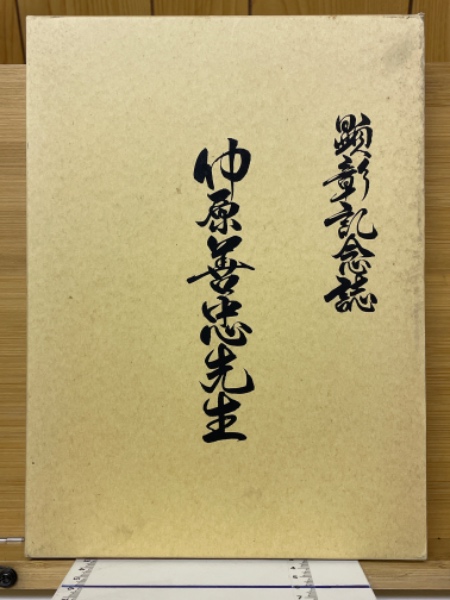 顕彰記念誌
仲原善忠先生